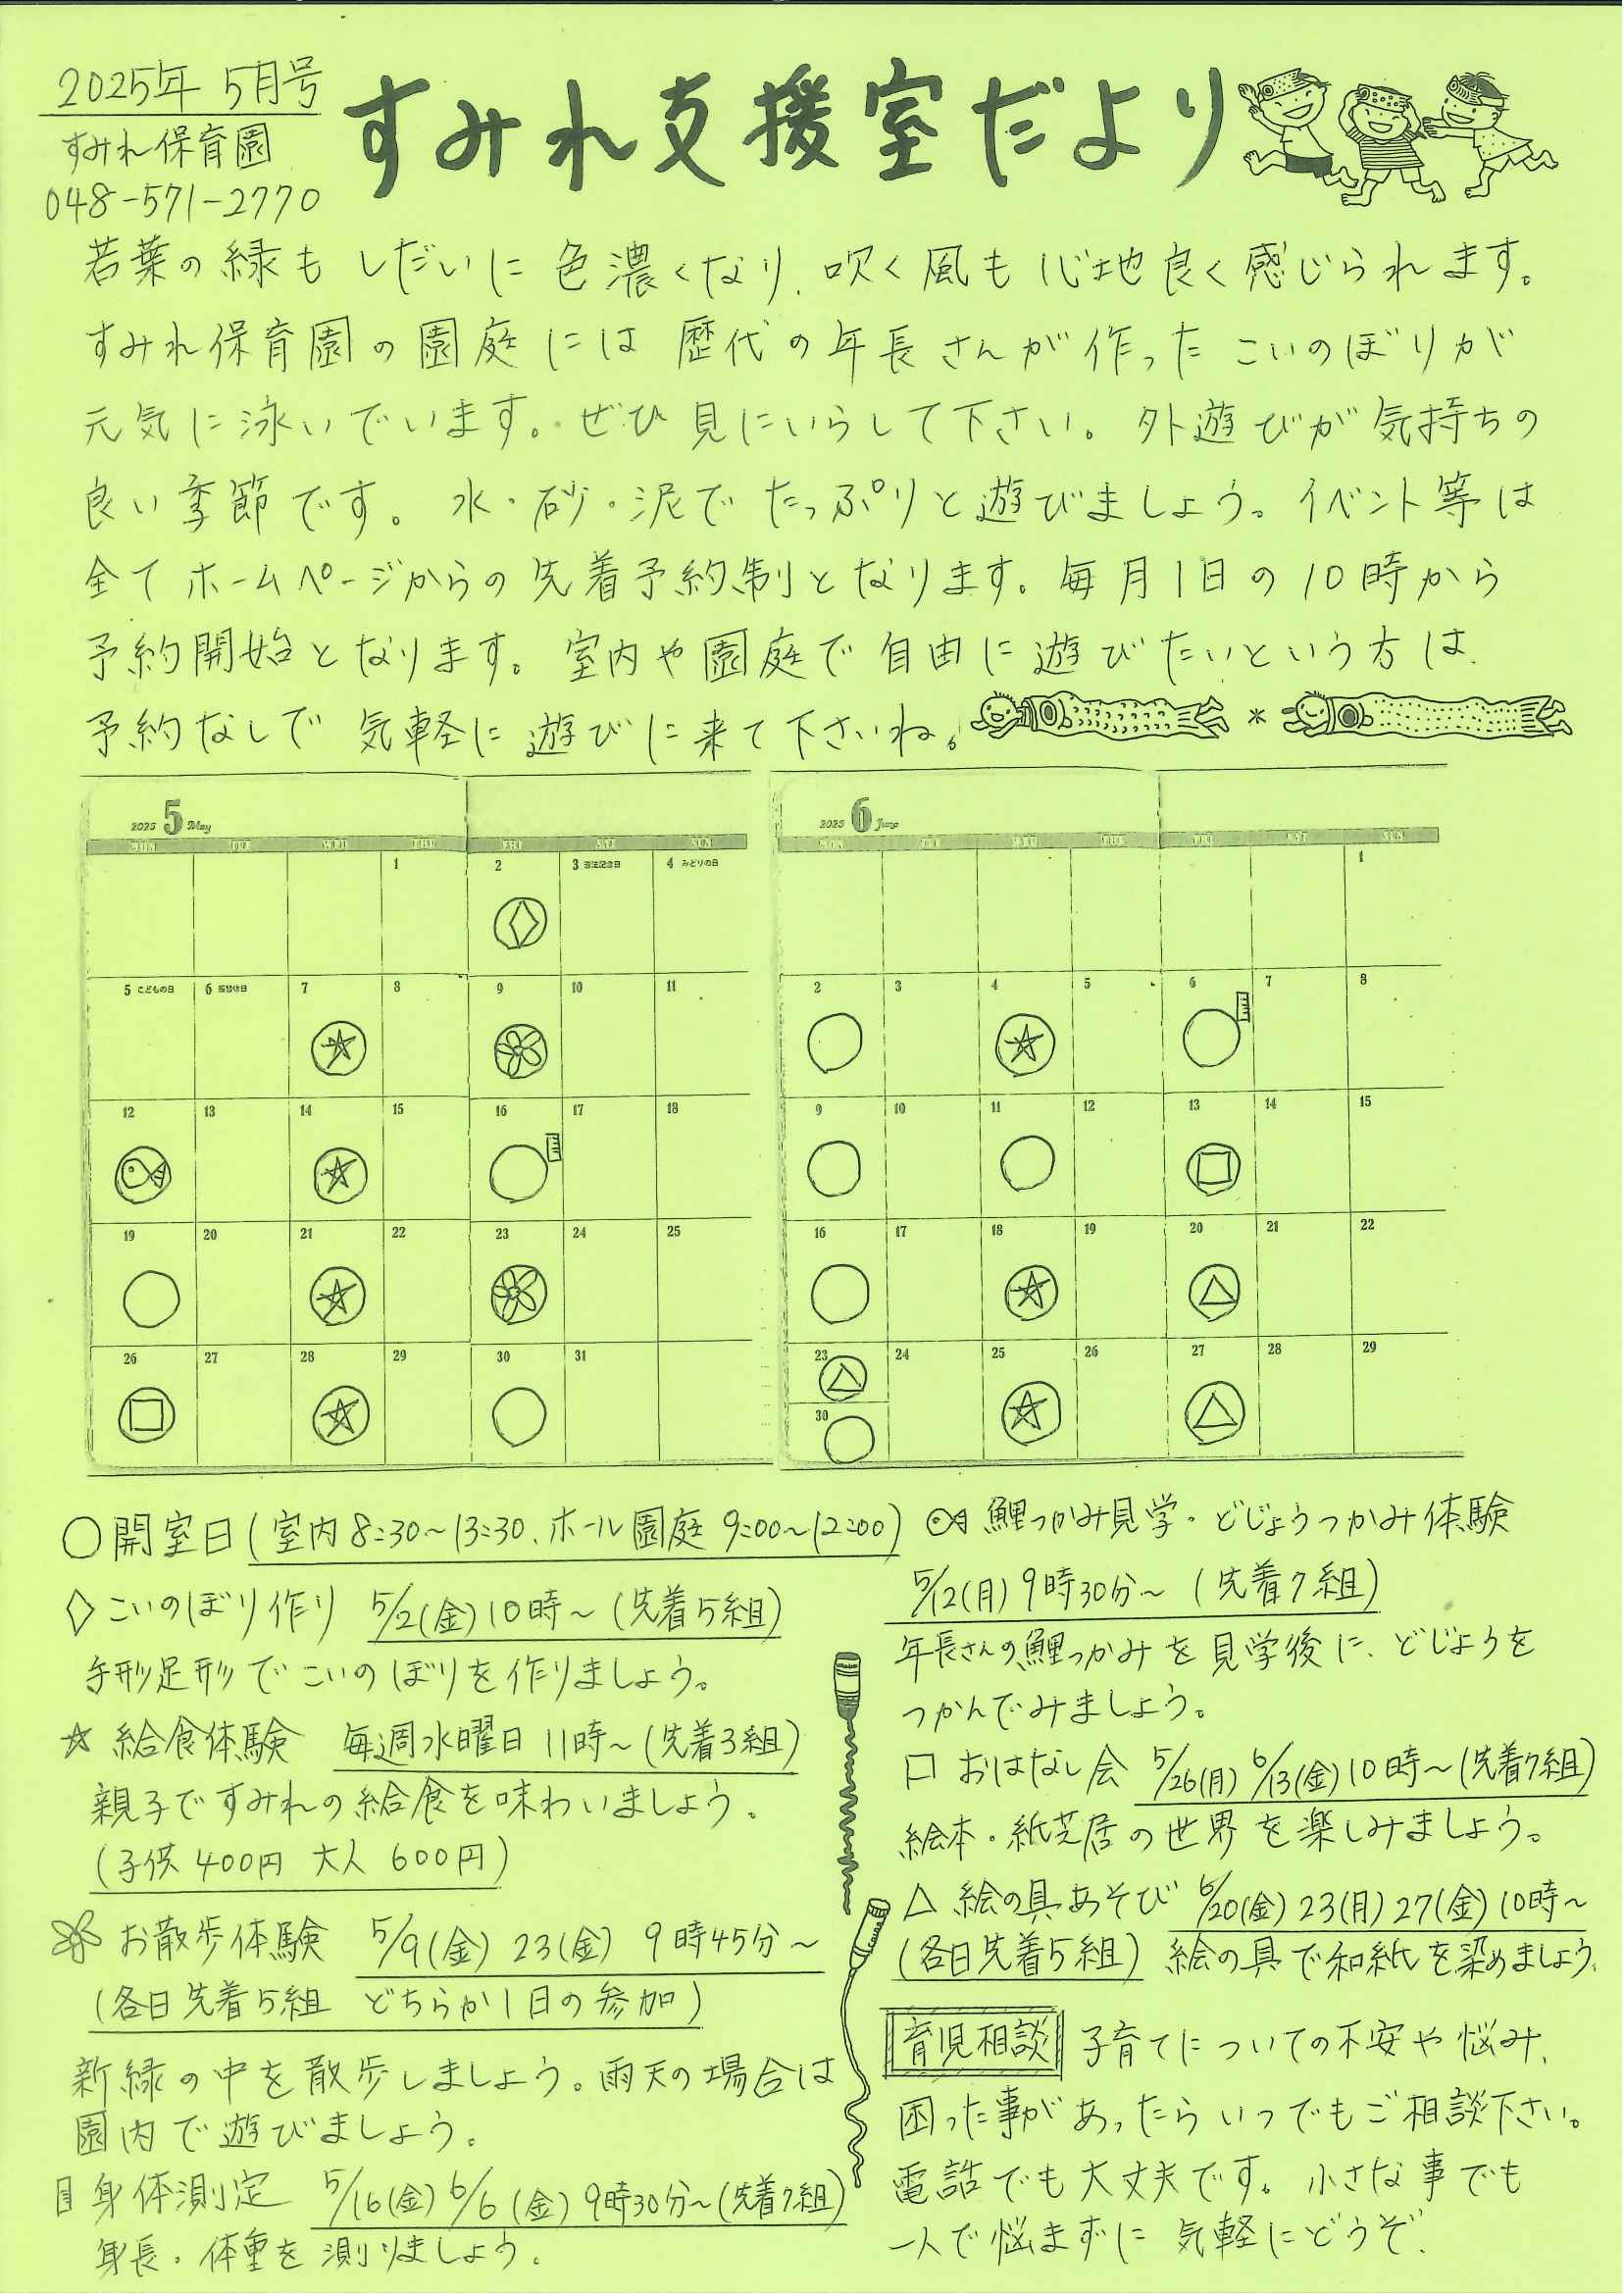 2025年 5月号
すみれ保育園
048-571-2770
すみれ支援室だより
若葉の緑も しだいに 色濃くなり、吹く風も心地良く感じられます。
すみれ保育園の園庭には 歴代の年長さんが作った こいのぼりが
元気に泳いでいます。ぜひ見にいらして下さい。外遊びが気持ちの
良い季節です。水・砂・泥で たっぷりと遊びましょう。イベント等は
全てホームページからの先着予約制となります。毎月1日の10時から
予約開始となります。室内や園庭で自由に遊びたいという方は、
予約なしで 気軽に遊びに来て下さいね。
2025 5 May
MON TUE WED THU FRI SAT SUN
1 2 3 憲法記念日 4 みどりの日
5 こどもの日 6 振替休日 7 8 9 10 11
12 13 14 15 16 17 18
19 20 21 22 23 24 25
26 27 28 29 30 31
2025 6 June
MON TUE WED THU FRI SAT SUN
1
2 3 4 5 6 7 8
9 10 11 12 13 14 15
16 17 18 19 20 21 22
23 24 25 26 27 28 29
30
○開室日(室内8:30~13:30、ホール園庭 9:00~12:00)
◇こいのぼり作り 5/2(金)10時~(先着5組)
手形足形でこいのぼりを作りましょう。
☆ 給食体験 毎週水曜日 11時~(先着3組)
親子ですみれの給食を味わいましょう。
(子供400円 大人 600円)
お散歩体験 5/9(金) 23(金) 9時45分~
(各日先着5組 どちらか1日の参加)
新緑の中を散歩しましょう。雨天の場合は
園内で遊びましょう。
身体測定 5/16(金) 6/6(金) 9時30分~(先着7組)
身長・体重を測りましょう。
鯉つかみ見学・どじょうつかみ体験
5/12(月) 9時30分~ (先着7組)
年長さんの鯉つかみを見学後に、どじょうを
つかんでみましょう。
□ おはなし会 5/26(月) 6/13(金)10時~(先着7組)
絵本・紙芝居の世界を楽しみましょう。
△ 絵の具あそび 6/20(金) 23(月) 27(金)10時~
(各日先着5組) 絵の具で和紙を染めましょう。
育児相談 子育てについての不安や悩み、
困った事があったらいつでもご相談下さい。
電話でも大丈夫です。小さな事でも
一人で悩まずに 気軽にどうぞ。